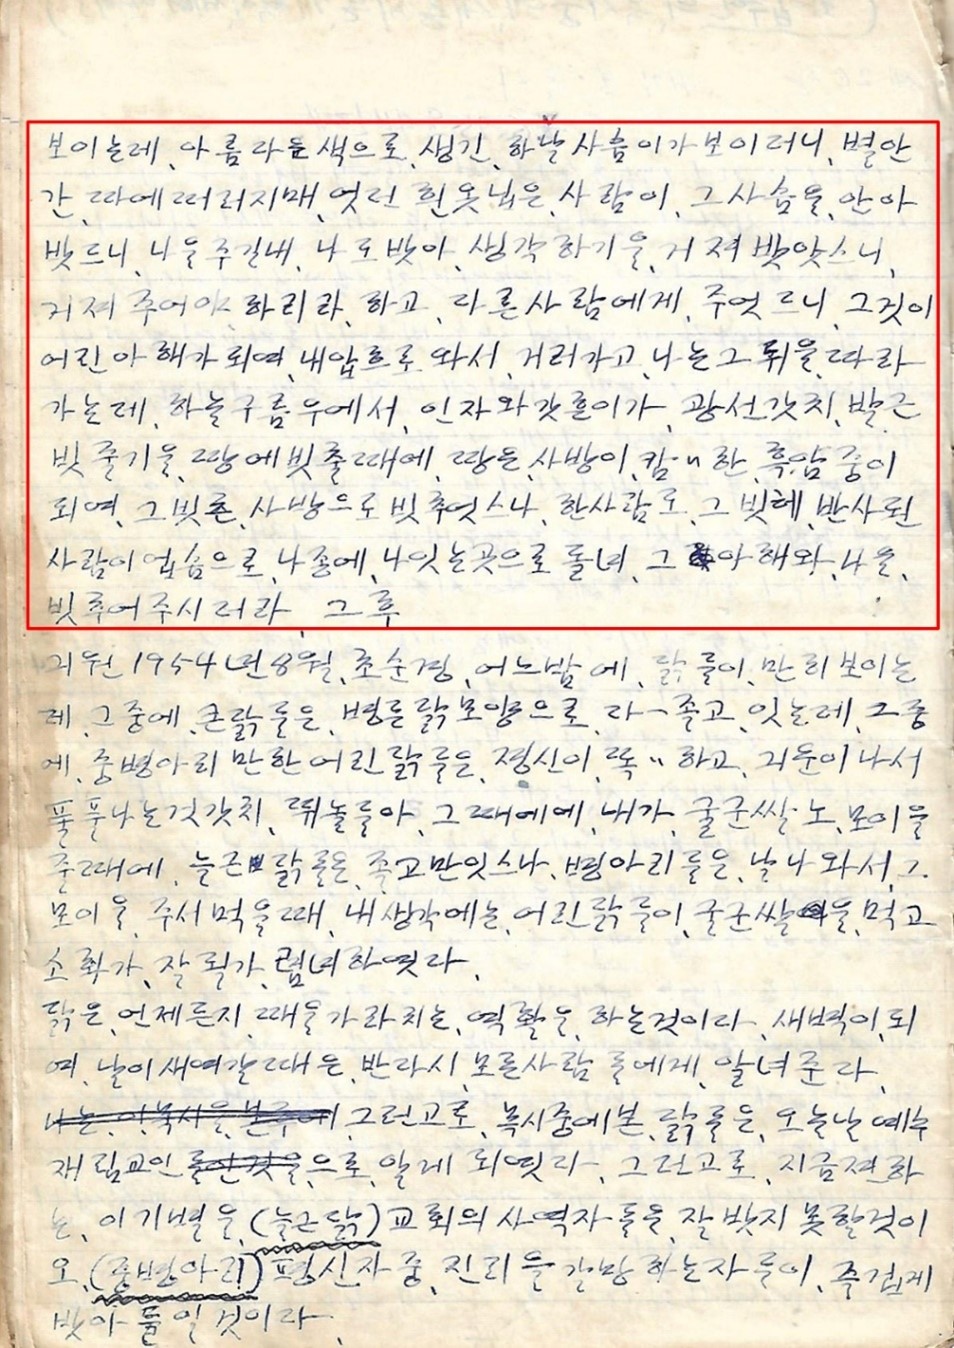 보이는레, 아름다운색으로, 생긴, 하날사슴이가보이러니, 별안
간, 따에떠러지매, 엇던 흰옷닙은, 사람이, 그사슴을, 안아
밧드니, 나을주길내, 나도밧아, 생각하기을, 거져밧앗스니,
거져주어야 하리라, 하고, 다른사람에게, 주엇드니, 그것이
어린아해가되여, 내압흐로와서, 거러가고, 나는그뒤을, 따라
가는데, 하늘구름우에서, 인자와갓흔이가, 광선갓치, 발근
빗줄기을, 땅에빗출때에, 땅은, 사방이, 캄〃한, 흑암중이
되여, 그빗흔, 사방으로빗추엇스나, 한사람도, 그빗헤, 반사된
사람이업슴으로, 나종에, 나잇는곳으로돌녀, 그 아해와, 나을,
빗추어주시러라, 그후
긔원1954년8월, 초순경, 어느밤에, 닭들이, 만히보이는
레, 그중에, 큰닭들은, 병든닭모양으로, 다-졸고, 잇는레, 그중
에, 중병아리만한어린닭들은, 정신이, 똑〃하고, 긔운이나서
풀풀나는것갓치, 뛰놀들아, 그때에에, 내가, 굴군쌀노, 모이을
줄때에, 늘근 닭들은, 졸고만잇스나, 병아리들은, 날나와서, 그
모이을, 주서먹을때, 내생각에는, 어린닭들이, 굴군쌀 을, 먹고
소화가, 잘될가, 렴녀하엿다,
닭은, 언제든지, 때을가라치는, 역활을, 하는것이다, 새벽이, 되
여, 날이새여갈때는, 반다시, 모든사람들에게, 알녀준다,
나는, 이묵시을, 본후에 그런고로, 묵시중에본, 닭들은, 오늘날예수
재림교인들인것을, 으로, 알게되엿다, 그런고로, 지금젼하
는, 이기별을, (늘근닭)교회의사역자들은, 잘밧지못할것이
오, (중병아리)평신자중, 진리을갈망하는자들이, 즐겁게
밧아들일것이라,